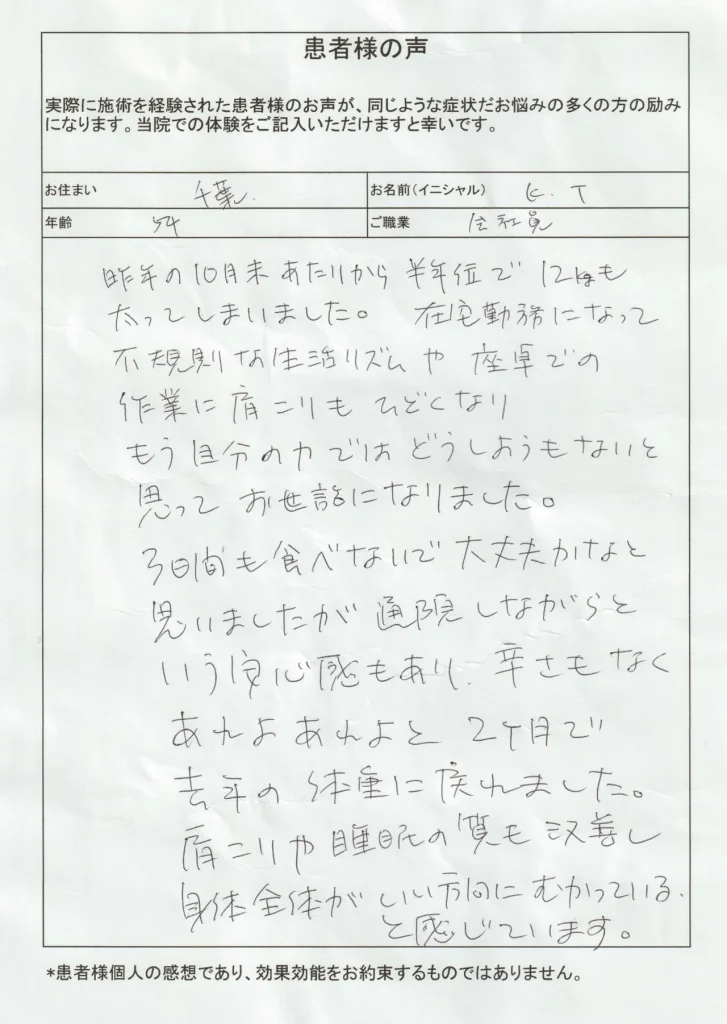 患者様の声
実際に施術を経験された患者様のお声が、同じような症状だお悩みの多くの方の励み
になります。当院での体験をご記入いただけますと幸いです。
お住まい 千葉. お名前(イニシャル) K.T
年齢 54 ご職業 会社員
昨年の10月末あたりから 半年位で 12kgも
太ってしまいました。 在宅勤務になって
不規則な生活リズムや 座卓での
作業に肩こりも ひどくなり
もう自分の力では どうしようもないと
思って お世話になりました。
3日間も食べないで 大丈夫かなと
思いましたが 通院しながらと
いう安心感もあり、辛さもなく
あれよあれよと 2ケ月で
去年の 体重に戻れました。
肩こりや 睡眠の質も 改善し
身体全体が いい方向に むかっている、
と感じています。
*患者様個人の感想であり、効果効能をお約束するものではありません。